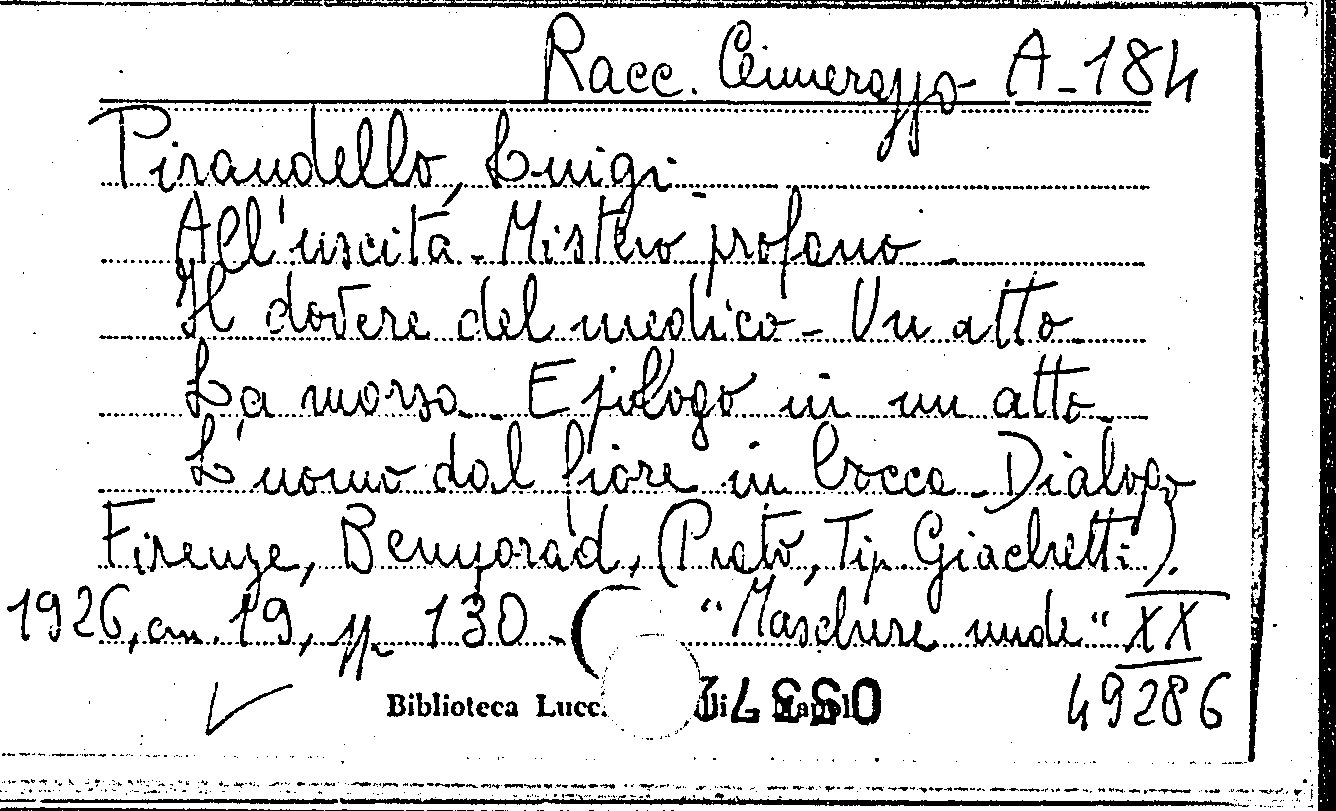 Racc. Cimeraggo A-184
Pirandello, Luigi.
All'uscita - Mistero profano -
Il dovere del medico - Un atto
La morsa - Epilogo in un atto -
L'uomo dal fiore in bocca - Dialogo
Firenze, Bemporad, (Prato, Tip. Giachetti).
1926, cm. 19, pp. 130 - ( "Maschere nude" XX
Biblioteca Lucc
49286